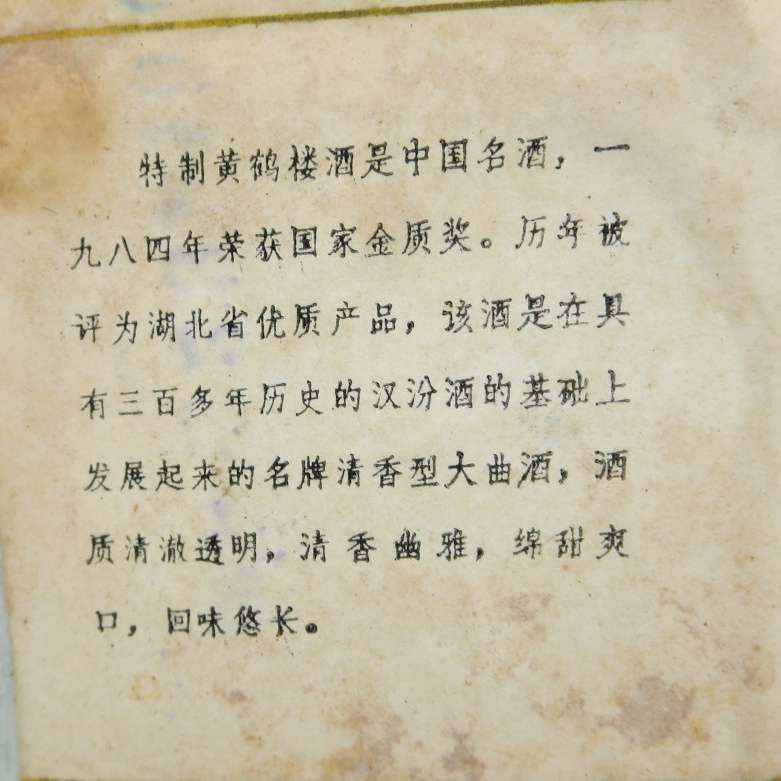 特制黄鹤楼酒是中国名酒，一
九八四年荣获国家金质奖。历年被
评为湖北省优质产品，该酒是在具
有三百多年历史的汉汾酒的基础上
发展起来的名牌清香型大曲酒，酒
质清澈透明，清香幽雅，绵甜爽
口，回味悠长。